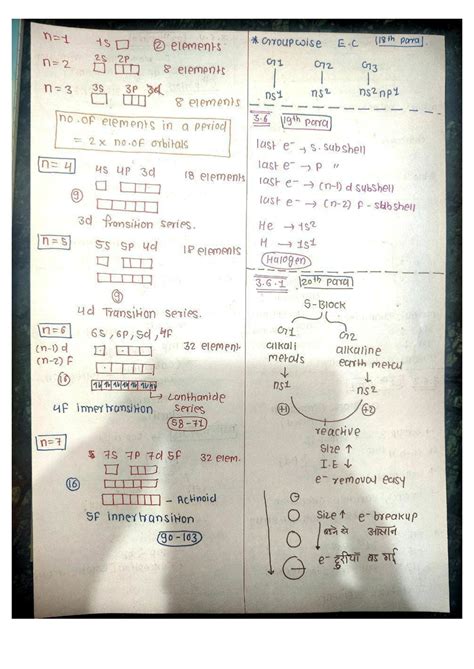 n=1 1S ② elements
n=2 2S 2P 8 elements
n=3 3S 3P 3d 8 elements
no. of elements in a period
= 2 x no. of orbitals
n=4 4S 4P 3d 18 elements
⑨
3d Transition series.
n=5 5S 5P 4d 18 elements
⑨
4d Transition Series.
n=6 6S, 6P, 5d, 4f 32 element
(n-1) d
(n-2) f
⑯
Lanthanide series
4F Inner transition
58-71
n=7 7S 7P 7d 5f 32 elem.
⑯ - Actinoid
5F inner transition
90-103
* Groupwise E.C 18th para
G1 G2 G3
ns1 ns2 ns2np1
3.6 19th para
last e- → s. subshell
last e- → P "
last e- → (n-1) d subshell
last e- → (n-2) f - subshell
He → 1S2
H → 1S1
Halogen
3.6.1 20th para
S-Block
G1 G2
alkali metals alkaline earth metal
ns1 ns2
+1 +2
reactive
size ↑
I.E ↓
e- removal easy
Size ↑ e- breakup
आसान
e-